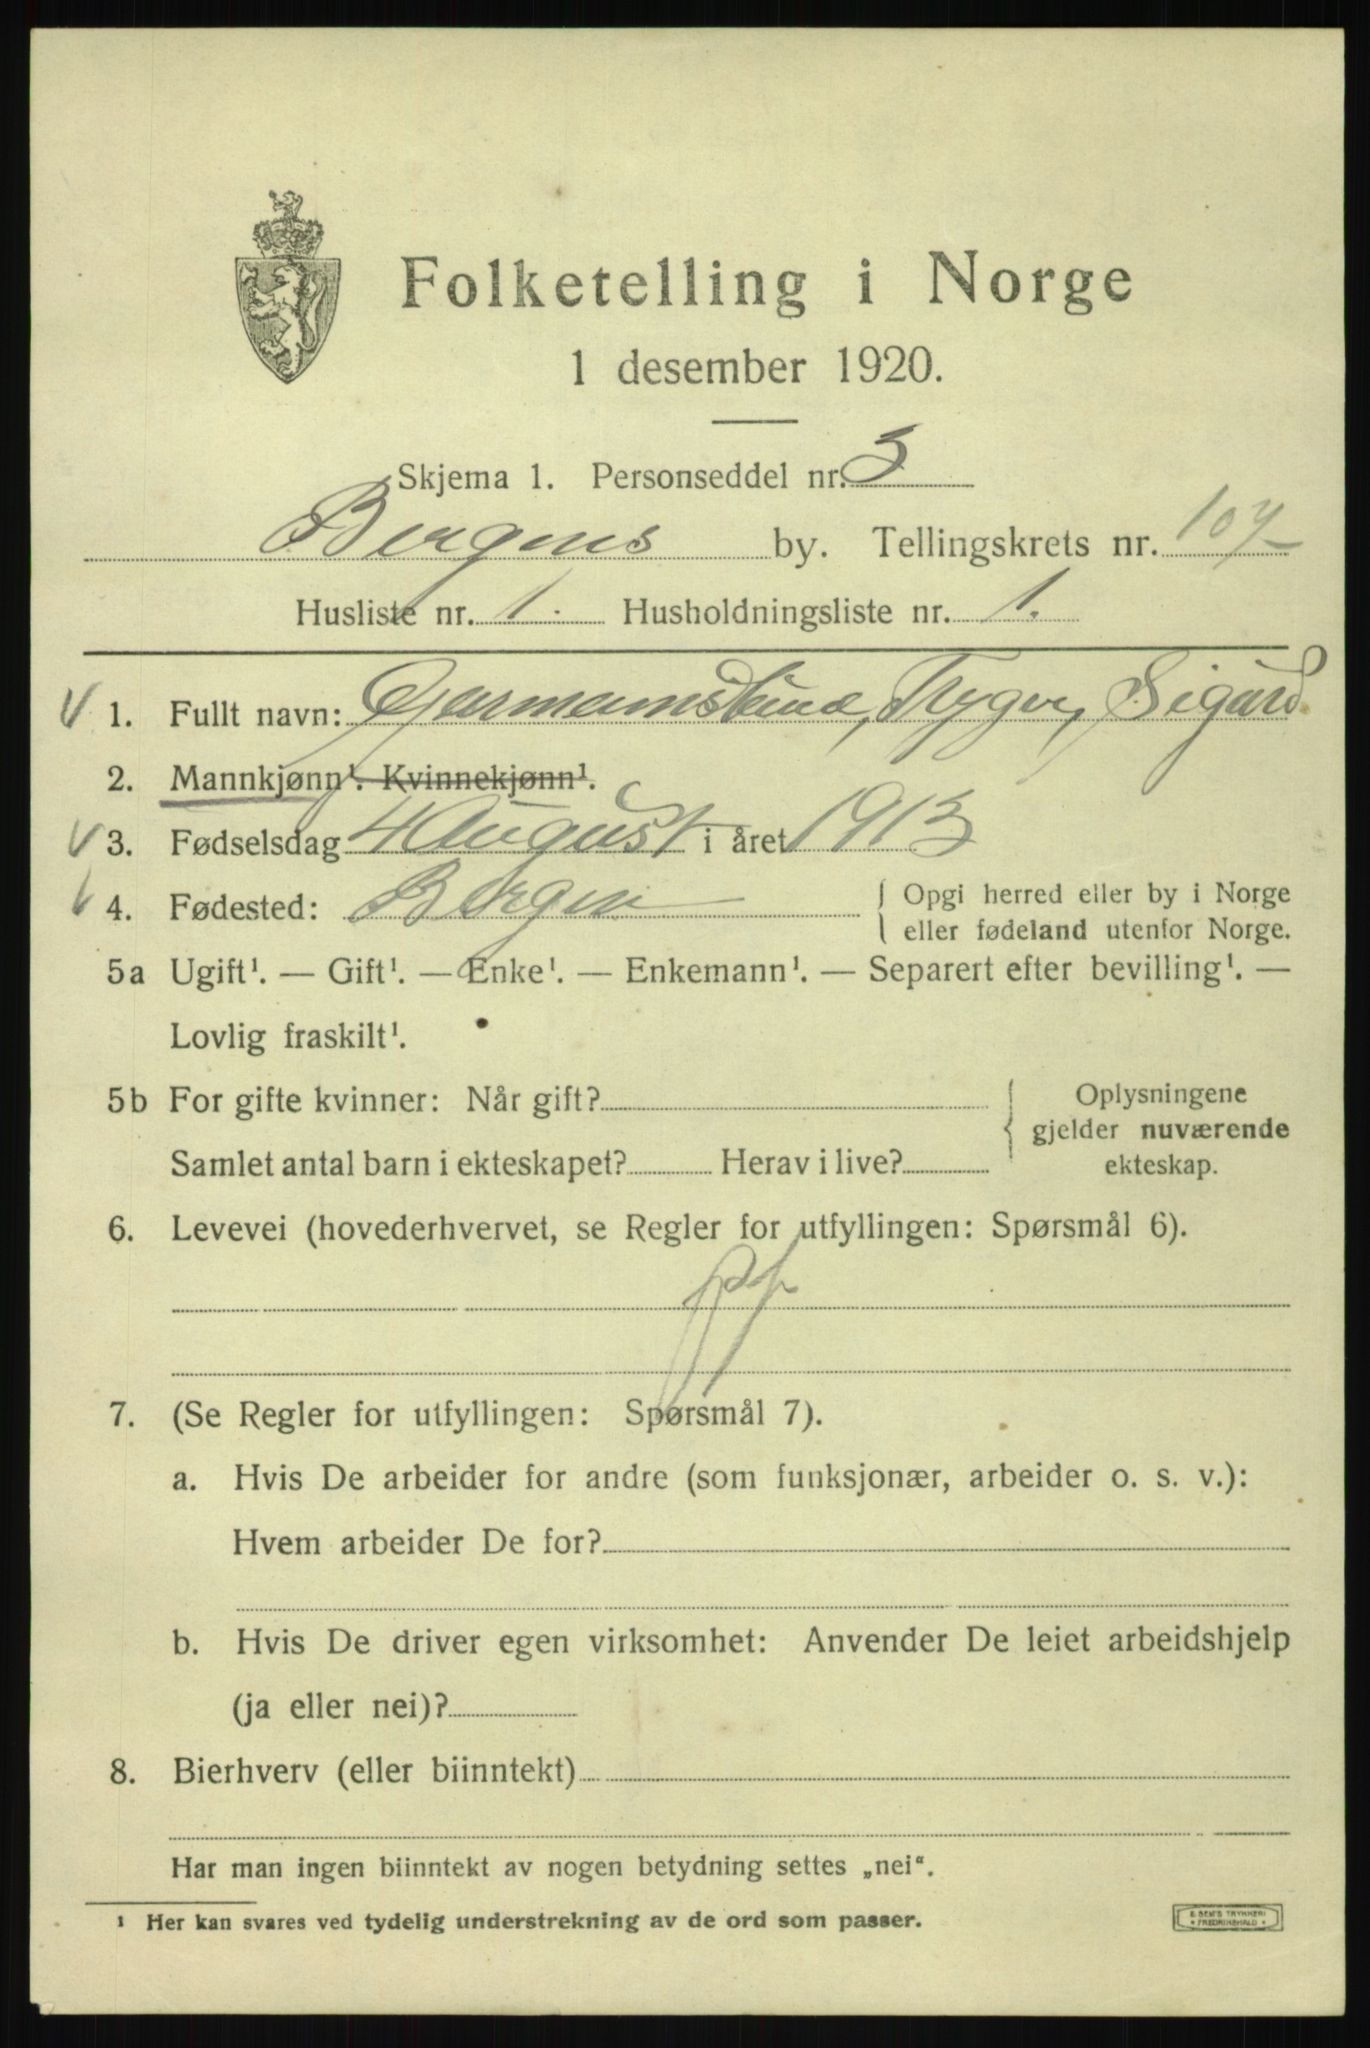 Folketelling i Norge
1 desember 1920.
Skjema 1. Personseddel nr. 3
Bergens by. Tellingskrets nr. 107
Husliste nr. 1. Husholdningsliste nr. 1.
1. Fullt navn: Trygve, Sigurd
2. Mannkjønn¹. Kvinnekjønn¹.
3. Fødselsdag 4 August i året 1913
4. Fødested: Bergen
Opgi herred eller by i Norge
eller fødeland utenfor Norge.
5a Ugift¹. — Gift¹. — Enke¹. — Enkemann¹. — Separert efter bevilling¹. —
Lovlig fraskilt¹.
5b For gifte kvinner: Når gift?
Samlet antal barn i ekteskapet? Herav i live?
Oplysningene
gjelder nuværende
ekteskap.
6. Levevei (hovederhvervet, se Regler for utfyllingen: Spørsmål 6).
7. (Se Regler for utfyllingen: Spørsmål 7).
a. Hvis De arbeider for andre (som funksjonær, arbeider o. s. v.):
Hvem arbeider De for?
b. Hvis De driver egen virksomhet: Anvender De leiet arbeidshjelp
(ja eller nei)?
8. Bierhverv (eller biinntekt)
Har man ingen biinntekt av nogen betydning settes „nei“.
¹ Her kan svares ved tydelig understrekning av de ord som passer.
E. SEM'S TRYKKERI
• FREDRIKSHALD •